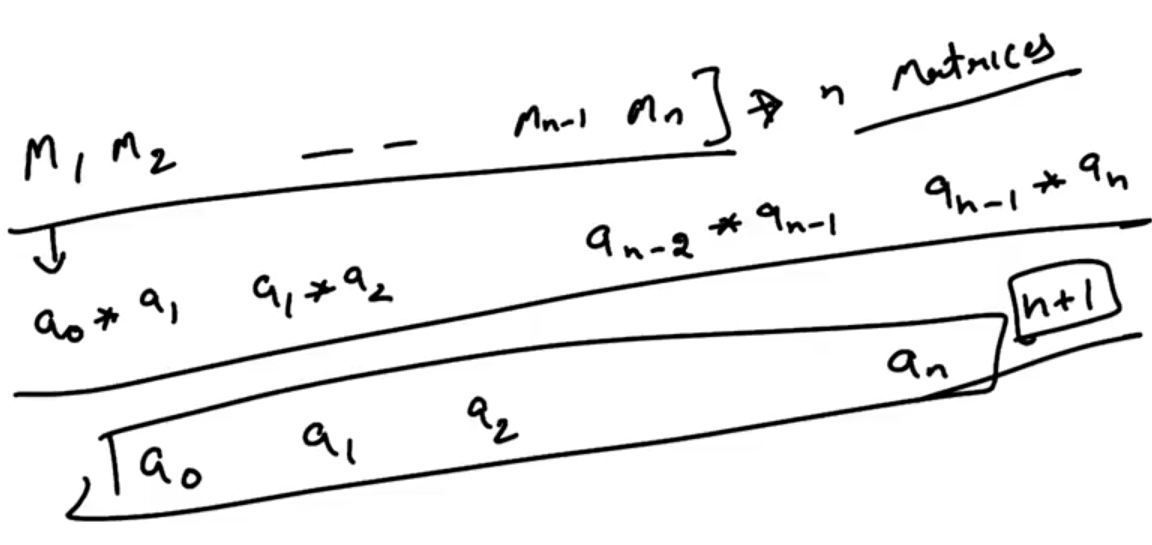 M1 M2 -- Mn-1 Mn] → n Matrices
a0 * a1 a1 * a2 an-2 * an-1 an-1 * an
a0 a1 a2 an n+1